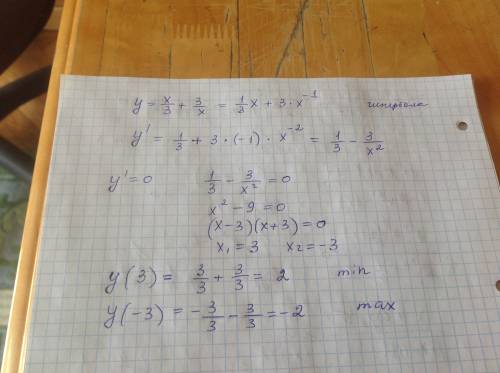 y = x/3 + 3/x = 1/3 x + 3 · x⁻¹ гипербола
y' = 1/3 + 3 · (-1) · x⁻² = 1/3 - 3/x²
y' = 0 1/3 - 3/x² = 0
x² - 9 = 0
(x-3)(x+3) = 0
x₁ = 3 x₂ = -3
y(3) = 3/3 + 3/3 = 2 min
y(-3) = -3/3 - 3/3 = -2 max